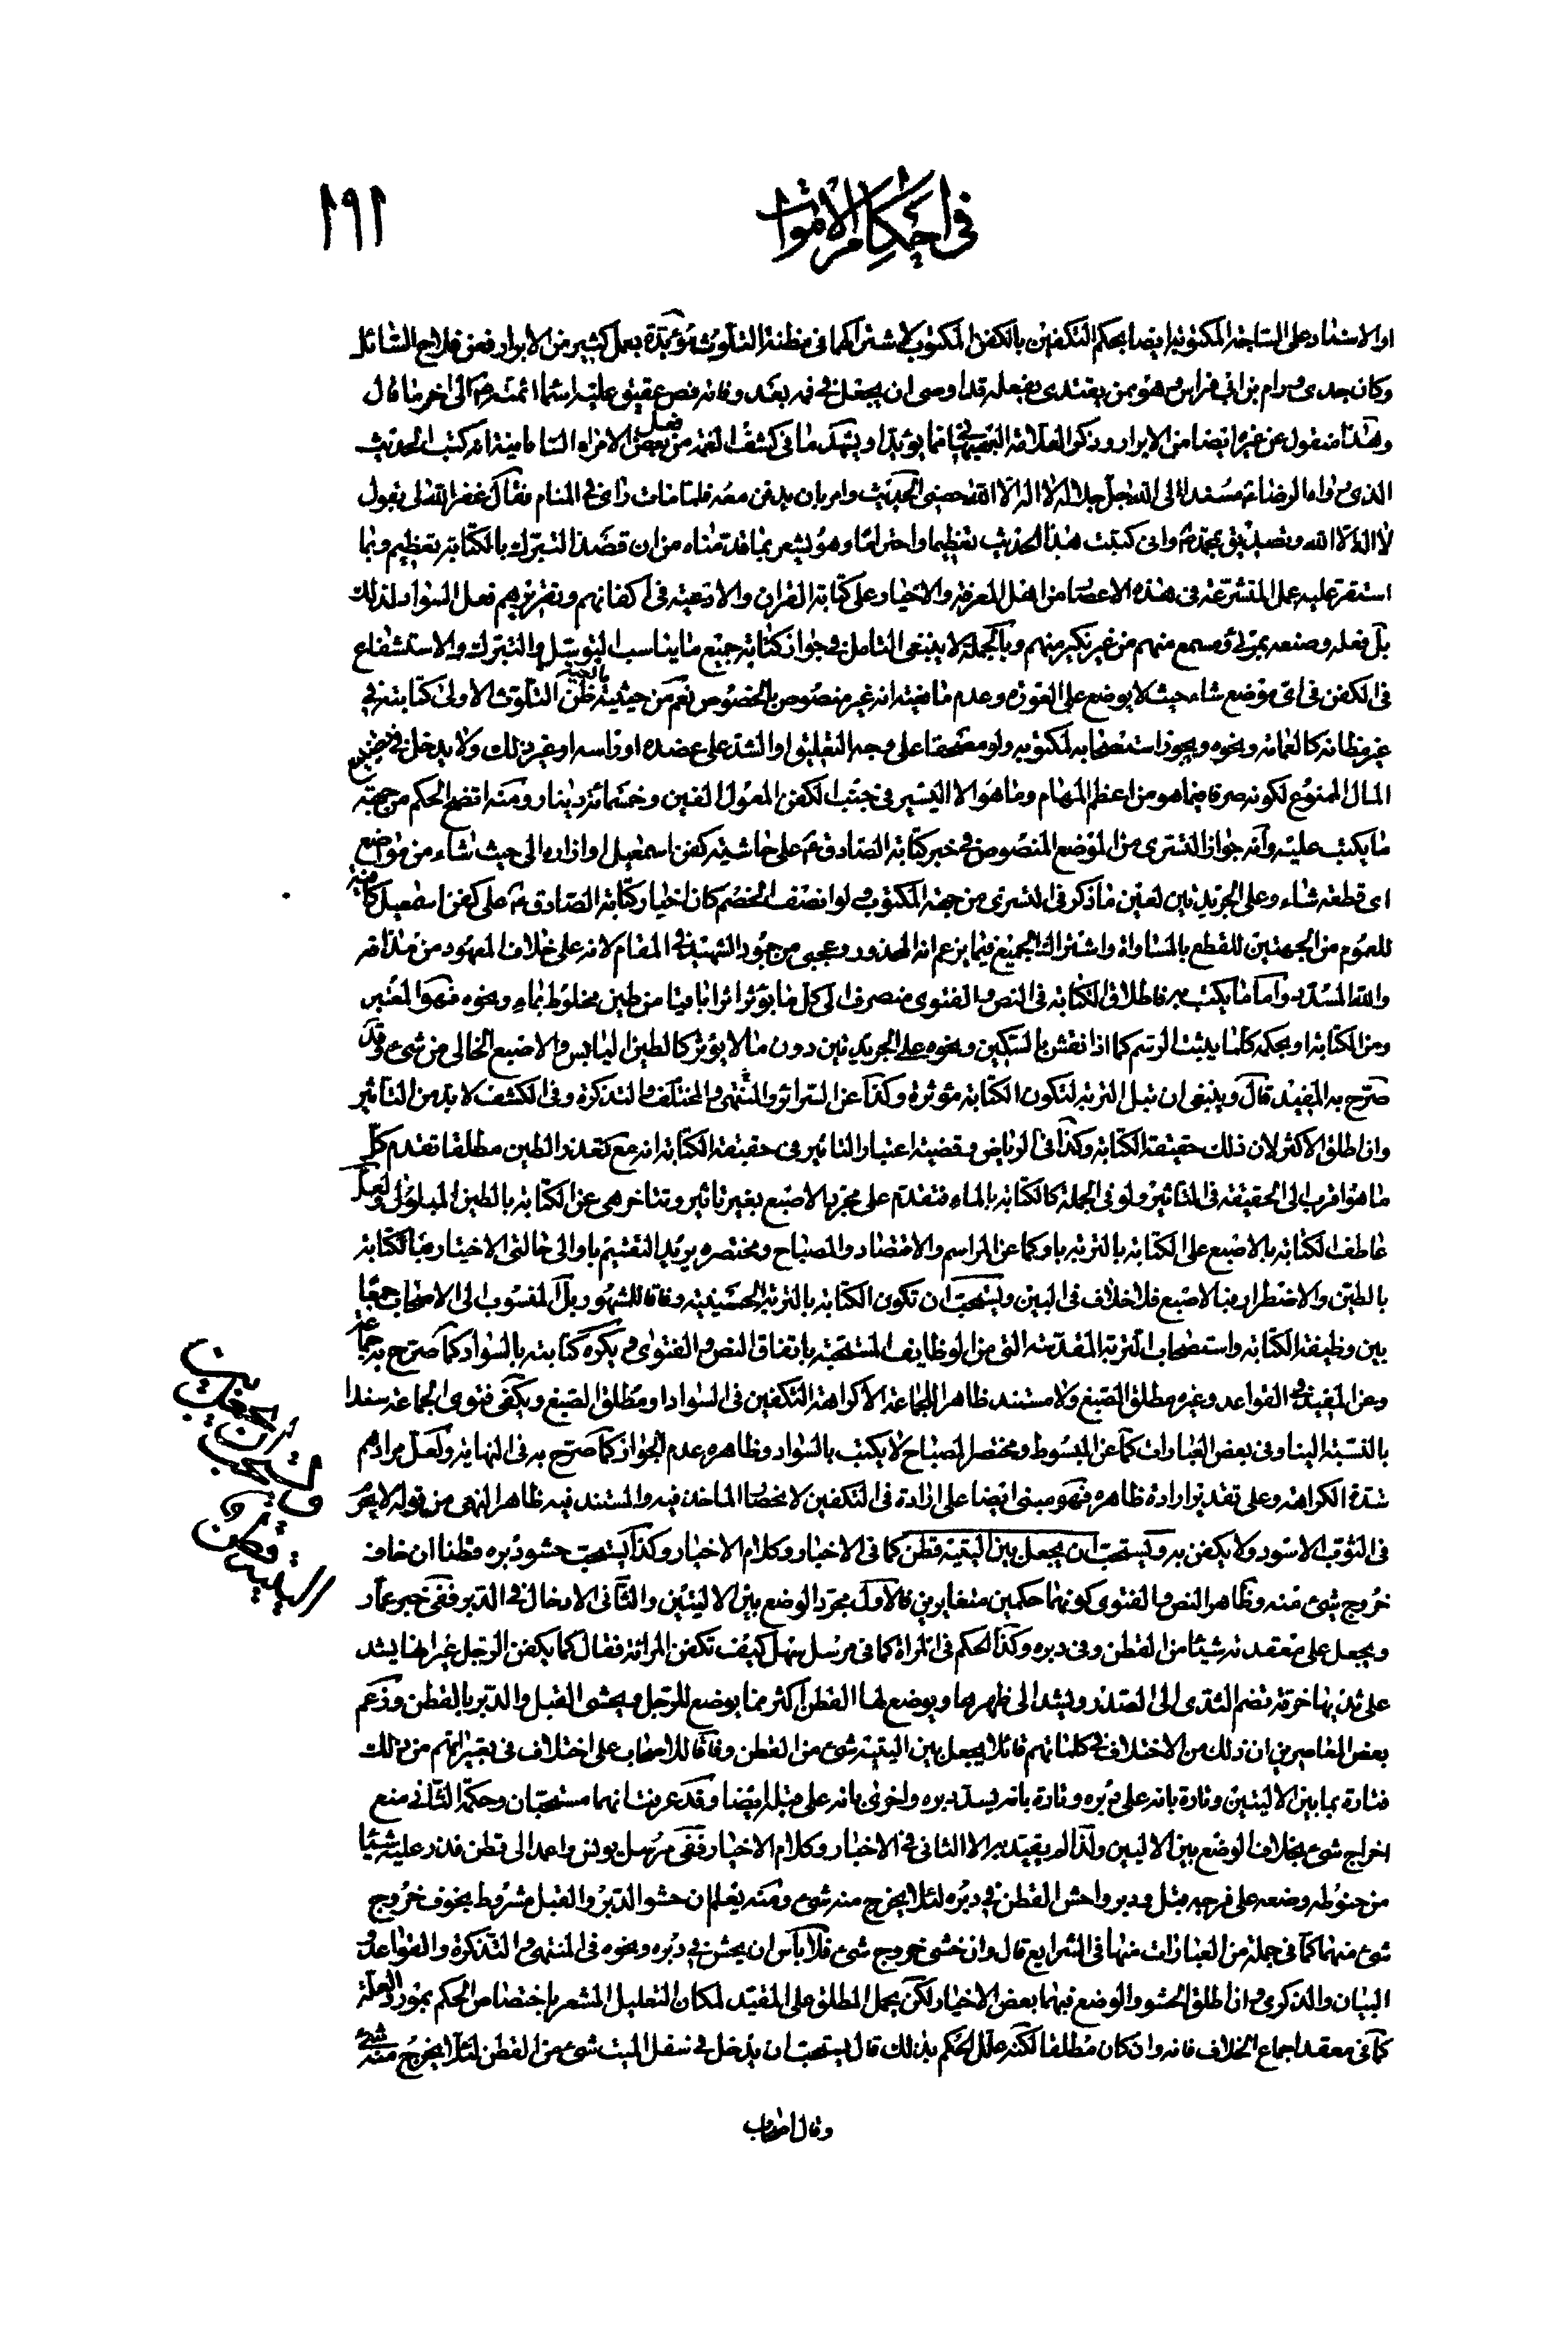 في احكام الاموات
١٩١
او الاستناد على الساجة المكتوبة ايضا بحكم التكفين بالكفن المكتوب لاشتراكهما في مظنة التلويث مؤيدة بعمل كثير من الابرار فعن فلاح السائل
وكان جدى ورام بن ابي فراس وهو ممن يقتدى بفعله قد اوصى ان يجعل في فمه بعد وفاته فص عقيق عليه اسماء ائمته ع الى اخر ما قال
وهذا منقول عن غيره ايضا من الابرار وذكر العلامة البهبهاني مما يؤيد ويشهد ما في كشف الغمة من بعض الامراء السامانية انه كتب الحديث
الذى رواه الرضاء مسندا الى الله جل جلاله لا اله الا الله حصنى الحديث وامر بان يدفن معه فلما مات راى في المنام فقال غفر الله لى بقول
لا اله الا الله وتصديق بمحمد ص وانى كتبت هذا الحديث تعظيما واحتراما وهو يشعر بما قدمناه من ان قصد التبرك بالكتابة تعظيم وبما
استقر عليه عمل المتشرعة في هذه الاعصار من اهل المعرفة والاخيار على كتابة القران والادعية في اكفانهم وتقريرهم فعل السواد لذلك
بل فعله وصنعه بمرئى ومسمع منهم من غير نكير منهم وبالجملة لا ينبغى التامل في جواز كتابة جميع ما يناسب التوسل والتبرك والاستشفاع
في الكفن في اى موضع شاء حيث لا يوضع على العورة وعدم مانعية انه غير منصوص بالخصوص نعم من حيثية ظن التلوث الاولى كتابته في
غير مظانه كالعمامة ونحوه ويجوز استصحابه لمكتوبه ولو مصحفا على وجه التعليق او الشد على عضده او راسه او غير ذلك ولا يدخل في تضييع
المال الممنوع لكونه صرفا فيما هو من اعظم المهام وما هو الا اليسير في جنب الكفن المعول الفين وخمسمائة دينار ومنه اتضح الحكم من جهة
ما يكتب عليه وانه جواز التسرى من الموضع المنصوص في خبر كتابة الصادق ع على حاشية كفن اسمعيل او ازاره الى حيث شاء من مواضع
اى قطعة شاء وعلى الجريدتين لعين ما ذكر في التسرى من جهة المكتوب ولو انصف الخصم كان اخبار كتابة الصادق ع على كفن اسمعيل كافية
للعموم من الجهتين للقطع بالمساواة واشتراك الجميع فيما يزعم انه المحذور وعجبى من جمود الشهيد في المقام لانه على خلاف المعهود من مذاقه
والله المسدد واما ما يكتب به فاطلاق الكتابة في النص والفتوى منصرف الى كل ما يؤثر اثرا باقيا من طين مخلوط بماء ونحوه فهو المعتبر
ومن الكتابة او بحكمه كلما يثبت الرسم كما اذا نقش بالسكين ونحوه على الجريدتين دون ما لا يؤثر كالطين اليابس والاصبع الخالى من شىء وقد
صرح به المفيد قال وينبغى ان تبل التربة لتكون الكتابة مؤثرة وكذا عن السرائر والمنتهى والمختلف والتذكرة وفي الكشف لا بد من التاثير
وان اطلق الاكثر لان ذلك حقيقة الكتابة وكذا في الرياض وقضية اعتبار التاثير في حقيقة الكتابة انه مع تعذر الطين مطلقا تقدم كل
ما هو اقرب الى الحقيقة في التاثير ولو في الجملة كالكتابة بالماء فتقدم على مجرد الاصبع بغير تاثير وتتاخر هى عن الكتابة بالطين المبلول ولعل
عاطف الكتابة بالاصبع على الكتابة بالتربة باو كما عن المراسم والاقتصاد والمصباح ومختصره يريد التقسيم باو الى حالتى الاختيار فبالكتابة
بالطين والاضطرار فبالاصبع فلا خلاف في البين ويستحب ان تكون الكتابة بالتربة الحسينية وفاقا للمشهور بل المنسوب الى الاصحاب جمعا
بين وظيفة الكتابة واستصحاب التربة المقدسة التى من الوظايف المستحبة باتفاق النص والفتوى ويكره كتابته بالسواد كما صرح به جماعة
وعن المفيد والقواعد وغيره مطلق الصبغ ولا مستند ظاهر الجماعة الا كراهة التكفين في السواد او مطلق الصبغ ويكفى فتوى الجماعة سندا
بالنسبة الينا وفي بعض العبارات كما عن المبسوط ومختصر المصباح لا يكتب بالسواد وظاهره عدم الجواز كما صرح به في النهاية ولعل مرادهم
شدة الكراهة وعلى تقدير ارادة ظاهره فهو مبنى ايضا على ارادة في التكفين لانحصار الماخذ فيه والمستند فيه ظاهر النهى من قوله لا يحرم
في الثوب الاسود ولا يكفن به ويستحب ان يجعل بين اليتيه قطن كما في الاخبار وكلام الاخيار وكذا يستحب حشو دبره قطنا ان خاف
خروج شىء منه وظاهر النص والفتوى كونهما حكمين متغايرين فالاول مجرد الوضع بين الاليتين والثانى الادخال في الدبر ففى خبر عمار
ويجعل على مقعدته شيئا من القطن وفى دبره وكذا الحكم في المراة كما في مرسل سهل كيف تكفن المرائة فقال كما يكفن الرجل غير انها يشد
على ثدييها خرقة تضم الثدى الى الصدر ويشد الى ظهرها ويوضع لها القطن اكثر مما يوضع للرجل ويحشى القبل والدبر بالقطن وزعم
بعض المعاصرين ان ذلك من الاختلاف في كلماتهم قائلا يجعل بين اليتيه شىء من القطن وفاقا للاصحاب على اختلاف في تعبيراتهم من ذلك
فتارة بما بين الاليتين وتارة بانه على دبره وتارة بانه يسد دبره واخرى بانه على قبله ايضا وقد عرفت انهما مستحبان وحكمة الثانى منع
اخراج شىء بخلاف الوضع بين الاليين ولذا لم يقيد به الا الثانى في الاخبار وكلام الاخيار ففى مرسل يونس واعمد الى قطن فذر عليه شيئا
من حنوطه وضعه على فرجيه قبل ودبر واحش القطن في دبره لئلا يخرج منه شىء ومنه يعلم ان حشو الدبر والقبل مشروط بخوف خروج
شىء منهما كما في جملة من العبارات منها في الشرايع قال وان خشى خروج شىء فلا باس ان يحشى في دبره ونحوه في المنتهى والتذكرة والقواعد و
البيان والذكرى وان اطلق الحشو والوضع فيهما بعض الاخيار لكن يحمل المطلق على المقيد لمكان التعليل المشعر باختصاص الحكم بمورد العلة
كما في معقد اجماع الخلاف فانه وان كان مطلقا لكنه علل الحكم بذلك قال يستحب ان يدخل في سفل الميت شىء من القطن لئلا يخرج منه شىء
وقال اصحاب